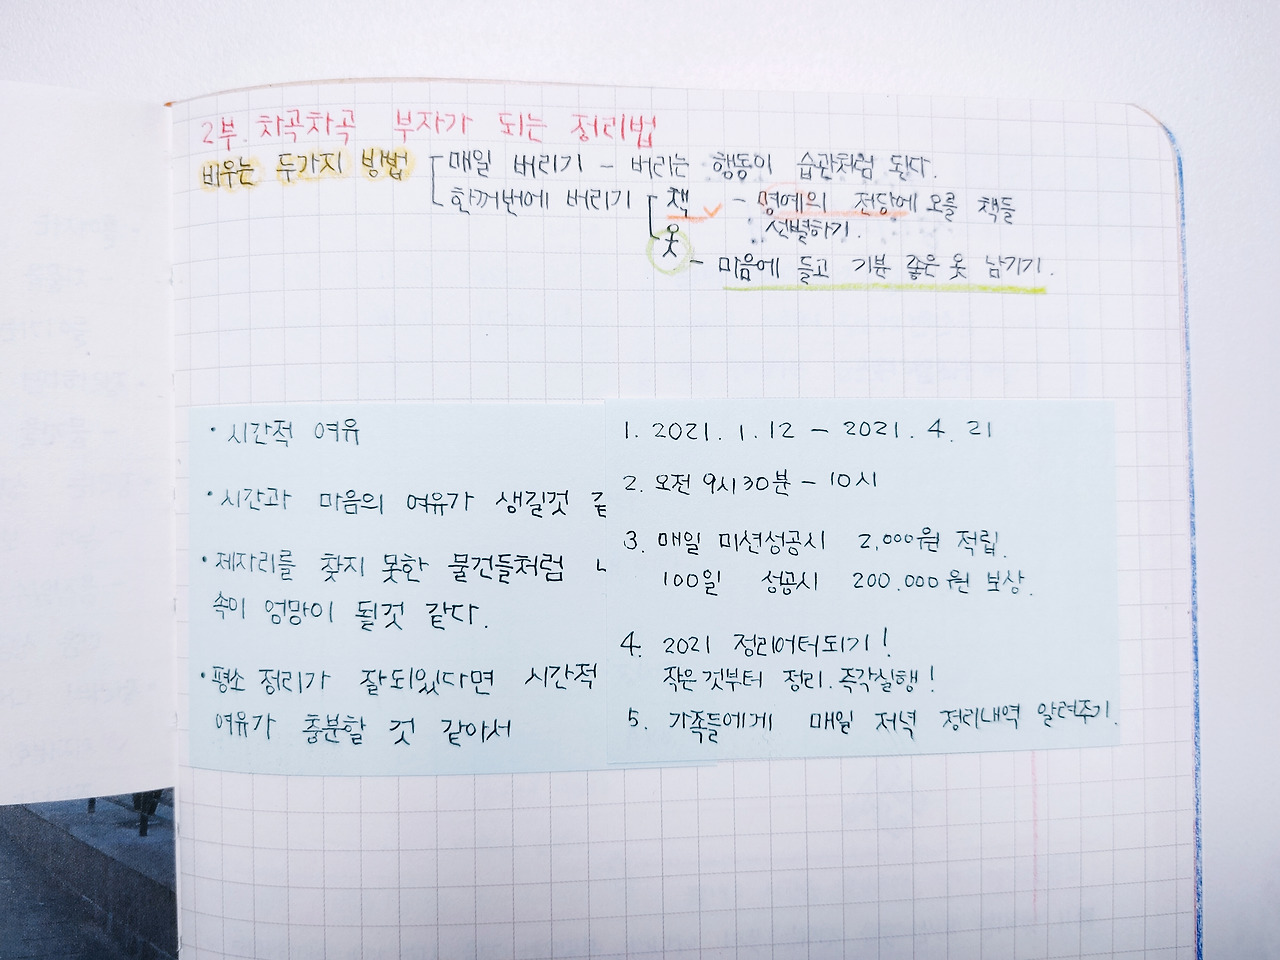 2부. 차곡차곡 부자가 되는 정리법
비우는 두가지 방법 매일 버리기 - 버리는 행동이 습관처럼 된다.
한꺼번에 버리기 책 - 명예의 전당에 오를 책들
선별하기.
옷 - 마음에 들고 기분 좋은 옷 남기기.
· 시간적 여유
· 시간과 마음의 여유가 생길것 같
· 제자리를 찾지 못한 물건들처럼
속이 엉망이 될것 같다.
· 평소 정리가 잘되있다면 시간적
여유가 충분할 것 같아서
1. 2021. 1. 12 - 2021. 4. 21
2. 오전 9시30분 - 10시
3. 매일 미션성공시 2,000원 적립.
100일 성공시 200.000원 보상.
4. 2021 정리어터되기!
작은것부터 정리. 즉각실행!
5. 가족들에게 매일 저녁 정리내역 알려주기.